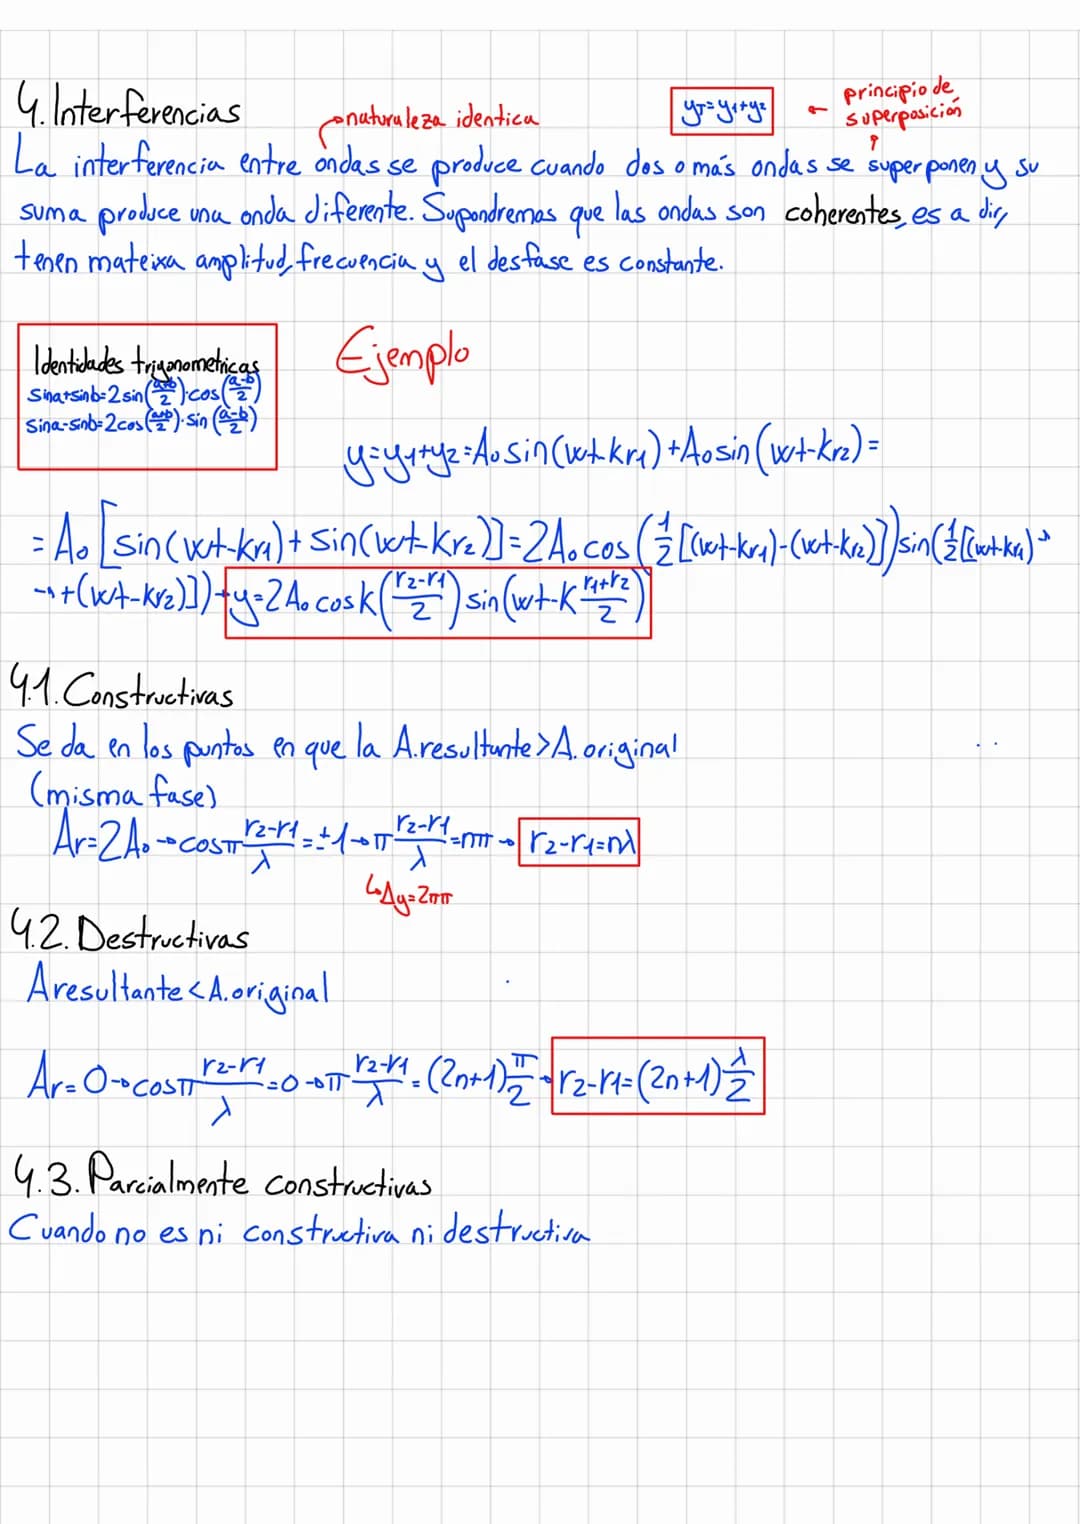 4. Interferencias
naturaleza identica
yT=y1+y2
principio de
superposición
La interferencia entre ondas se produce cuando dos o más ondas se superponen y su
suma produce una onda diferente. Supondremos que las ondas son coherentes, es a dir,
tenen mateixa amplitud, frecuencia y el desfase es constante.
Identidades trigonometricas
sina+sinb=2sin((a+b)/2)·cos((a-b)/2)
sina-sinb=2cos((a+b)/2)·sin((a-b)/2)
Ejemplo
y=y1+y2=A₀sin(wt-kr1)+A₀sin(wt-kr2)=
=A₀[sin(wt-kr1)+sin(wt-kr2)]=2A₀cos(1/2[(wt-kr1)-(wt-kr2)])sin(1/2[(wt-kr1)→
→+(wt-kr2)])→y=2A₀cosk((r2-r1)/2)sin(wt-k(r1+r2)/2)
4.1. Constructivas
Se da en los puntos en que la A.resultante>A.original
(misma fase)
Ar=2A₀→cosπ(r2-r1)/λ=±1→π(r2-r1)/λ=nπ→r2-r1=nλ
↳Δy=2nπ
4.2. Destructivas
Aresultante<A.original
Ar=0→cosπ(r2-r1)/λ=0→π(r2-r1)/λ=(2n+1)π/2→r2-r1=(2n+1)λ/2
4.3. Parcialmente constructivas
Cuando no es ni constructiva ni destructiva